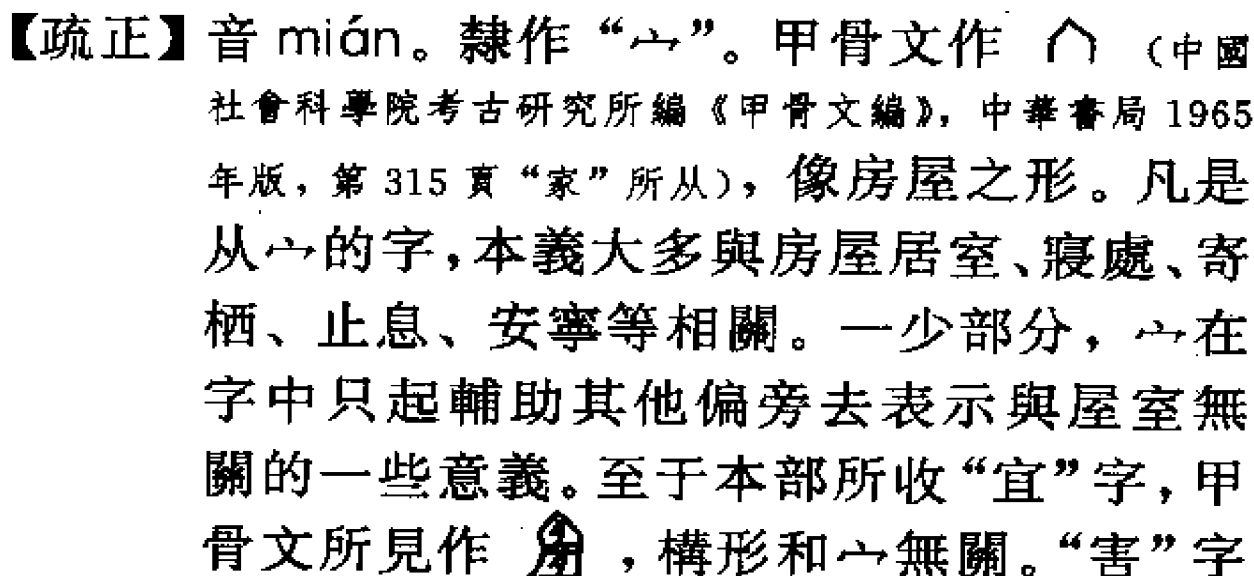 【疏正】音 mián。隸作“宀”。甲骨文作 （中國
社會科學院考古研究所編《甲骨文編》，中華書局 1965
年版，第 315 頁“家”所从），像房屋之形。凡是
从宀的字，本義大多與房屋居室、寢處、寄
栖、止息、安寧等相關。一少部分，宀在
字中只起輔助其他偏旁去表示與屋室無
關的一些意義。至于本部所收“宜”字，甲
骨文所見作 ，構形和宀無關。“害”字